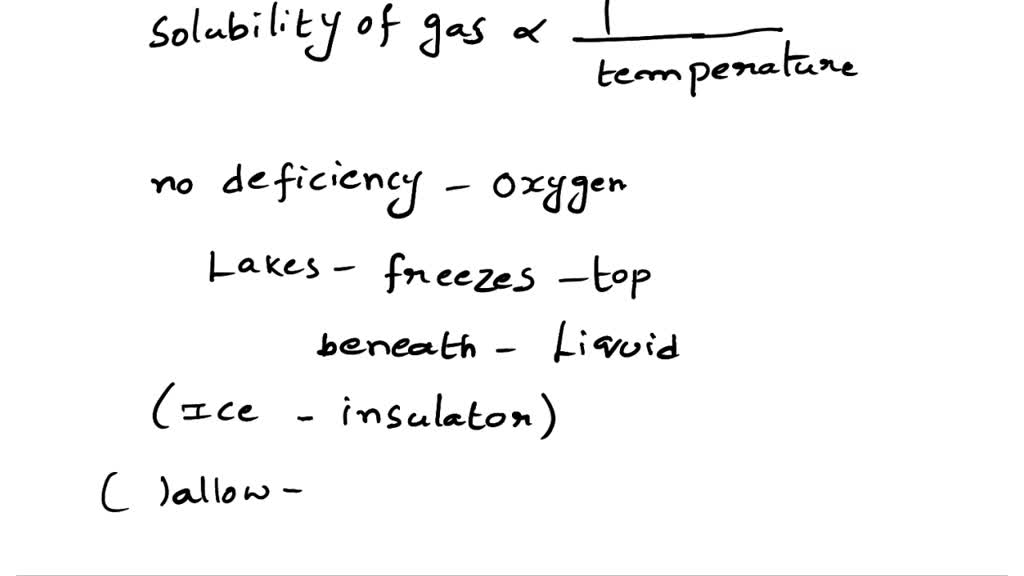 Solubility of gas ∝ 1
temperature
no deficiency - oxygen
Lakes - freezes - top
beneath - Liquid
(Ice - insulator)
( )allow -